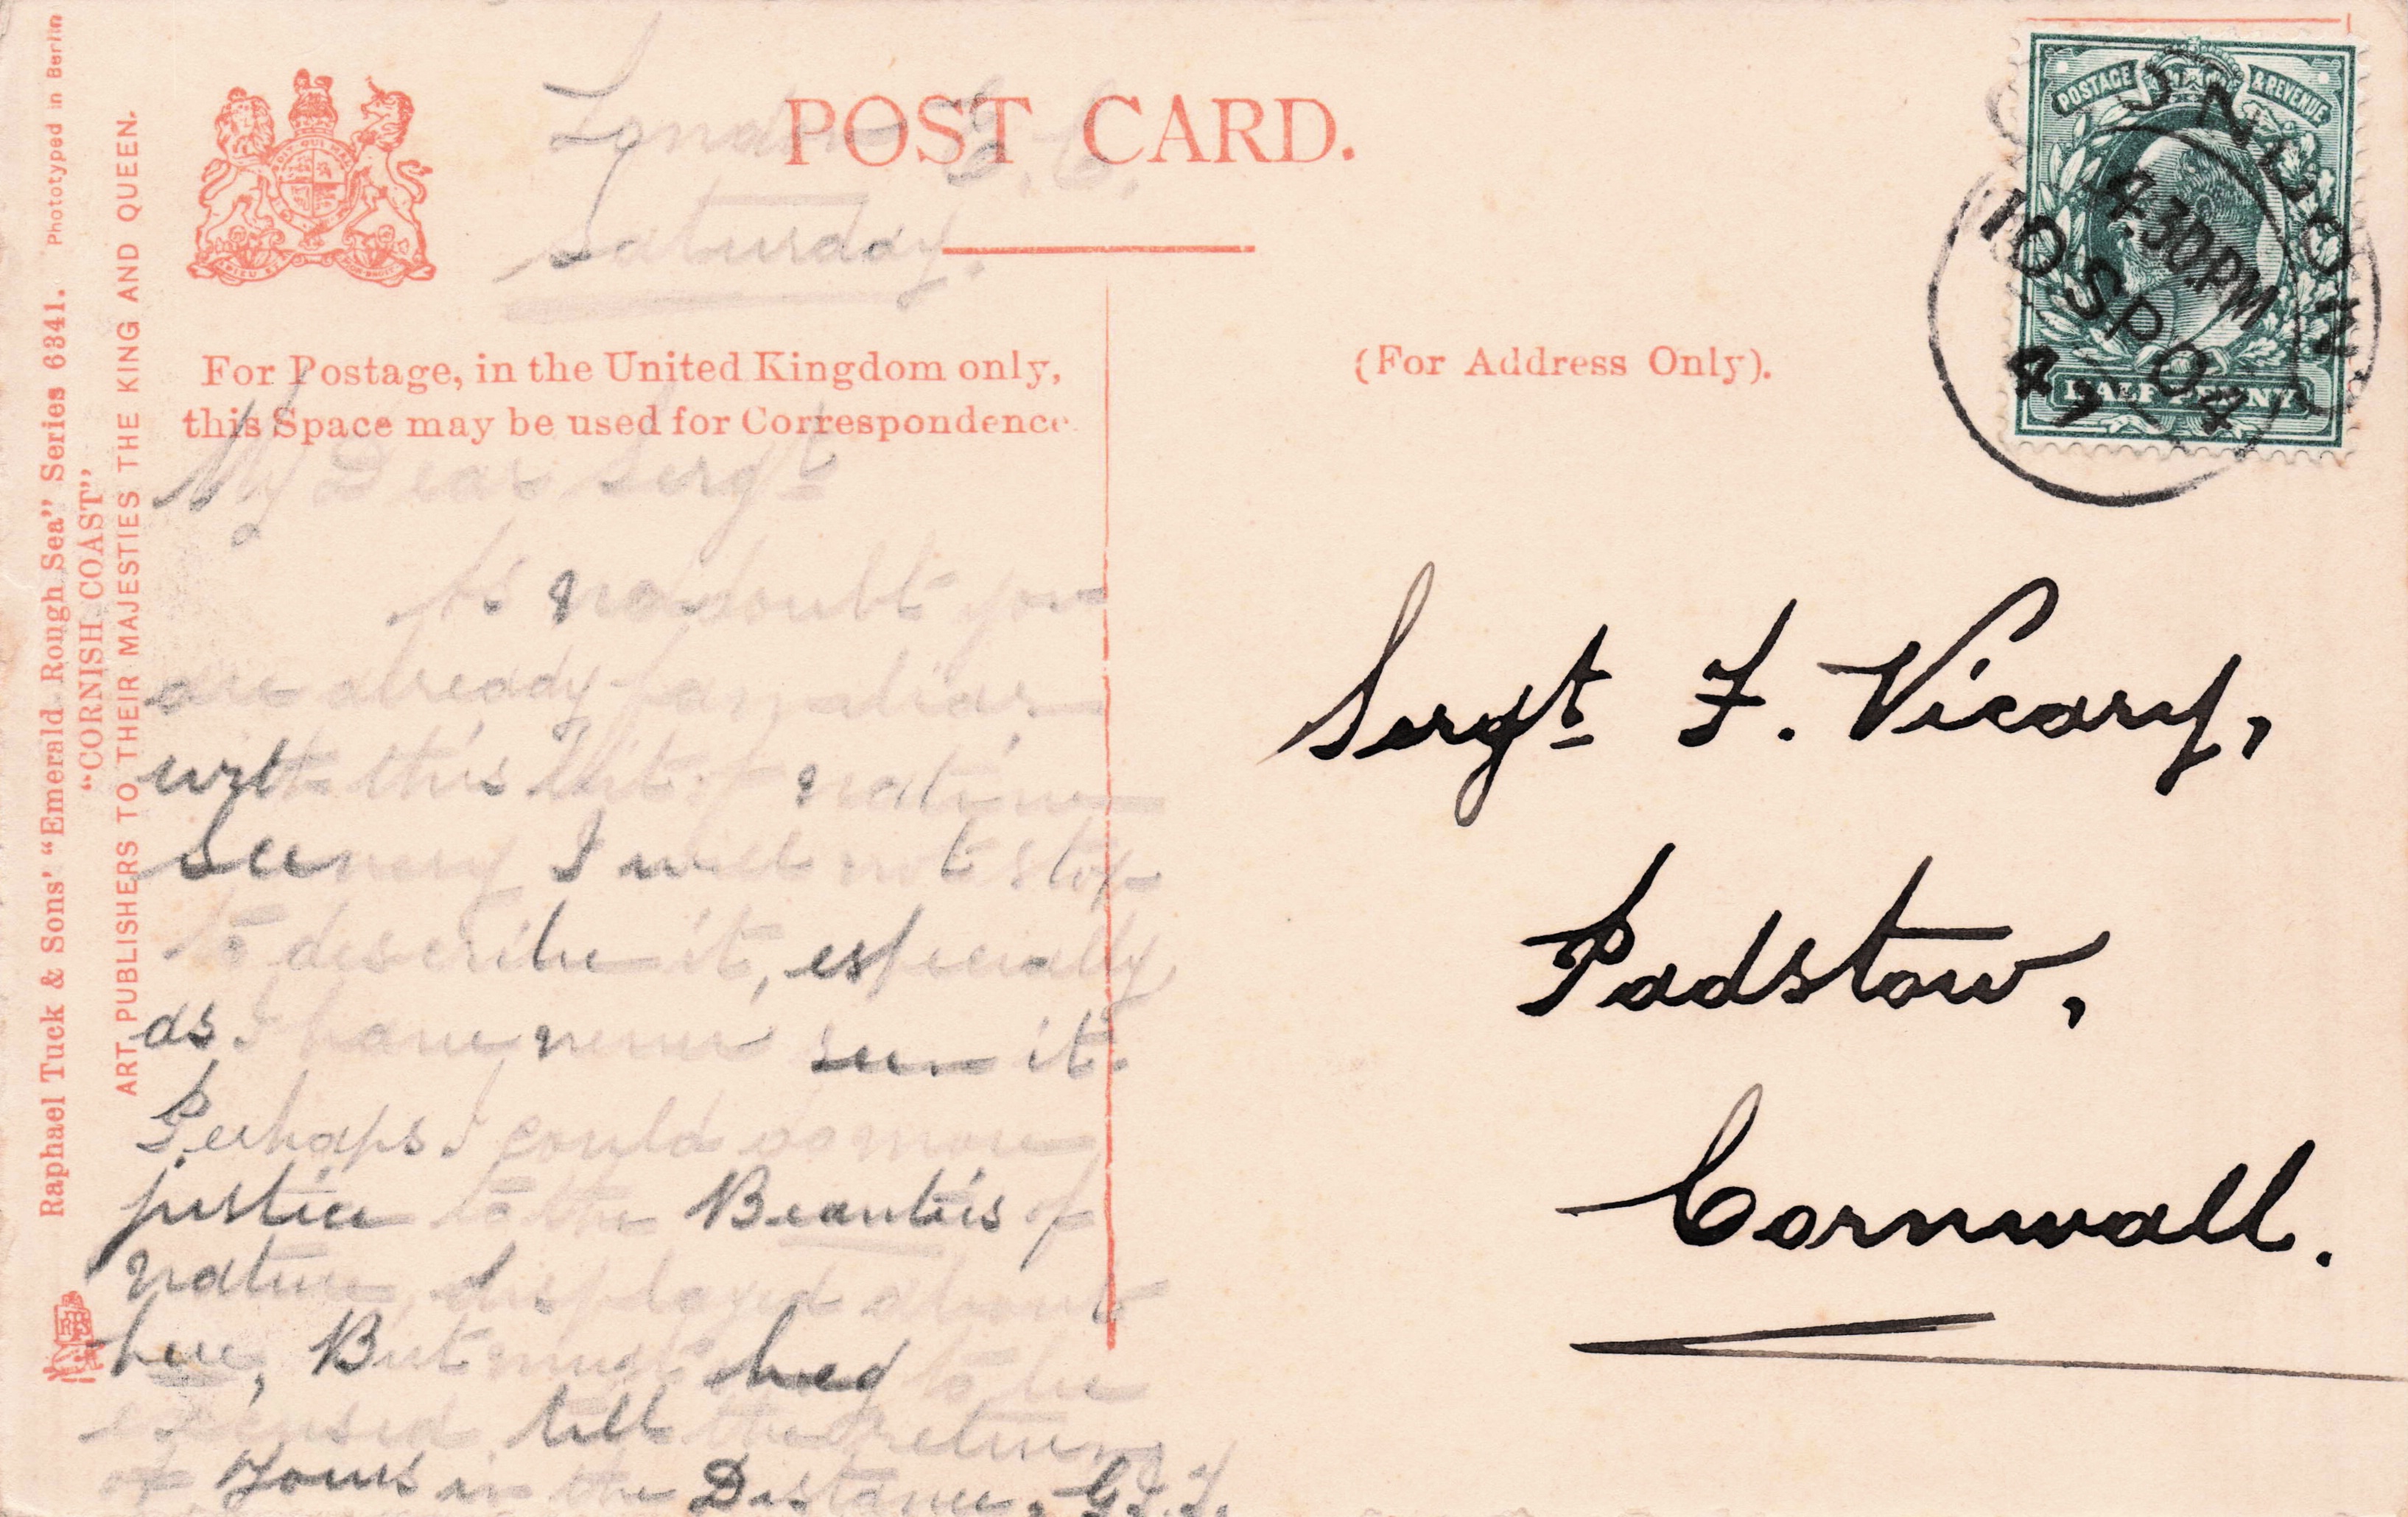 POST CARD.
London E.C.
Saturday.
For Postage, in the United Kingdom only,
this Space may be used for Correspondence.
(For Address Only).
POSTAGE & REVENUE
HALF PENNY
LONDON
4.30PM
10 SP 04
47
My Dear Sergt
As no doubt you
are already familiar
with this bit of native
Scenery I will not stop
to describe it, especially
as I have never seen it.
Perhaps I could do more
justice to the Beauties of
nature, displayed about
here, But must beg to be
excused till the return
of Yours in the Distance.
Sergt F. Vicary,
Padstow,
Cornwall.
Raphael Tuck & Sons' "Emerald Rough Sea" Series 6341. Phototyped in Berlin
"CORNISH COAST"
ART PUBLISHERS TO THEIR MAJESTIES THE KING AND QUEEN.